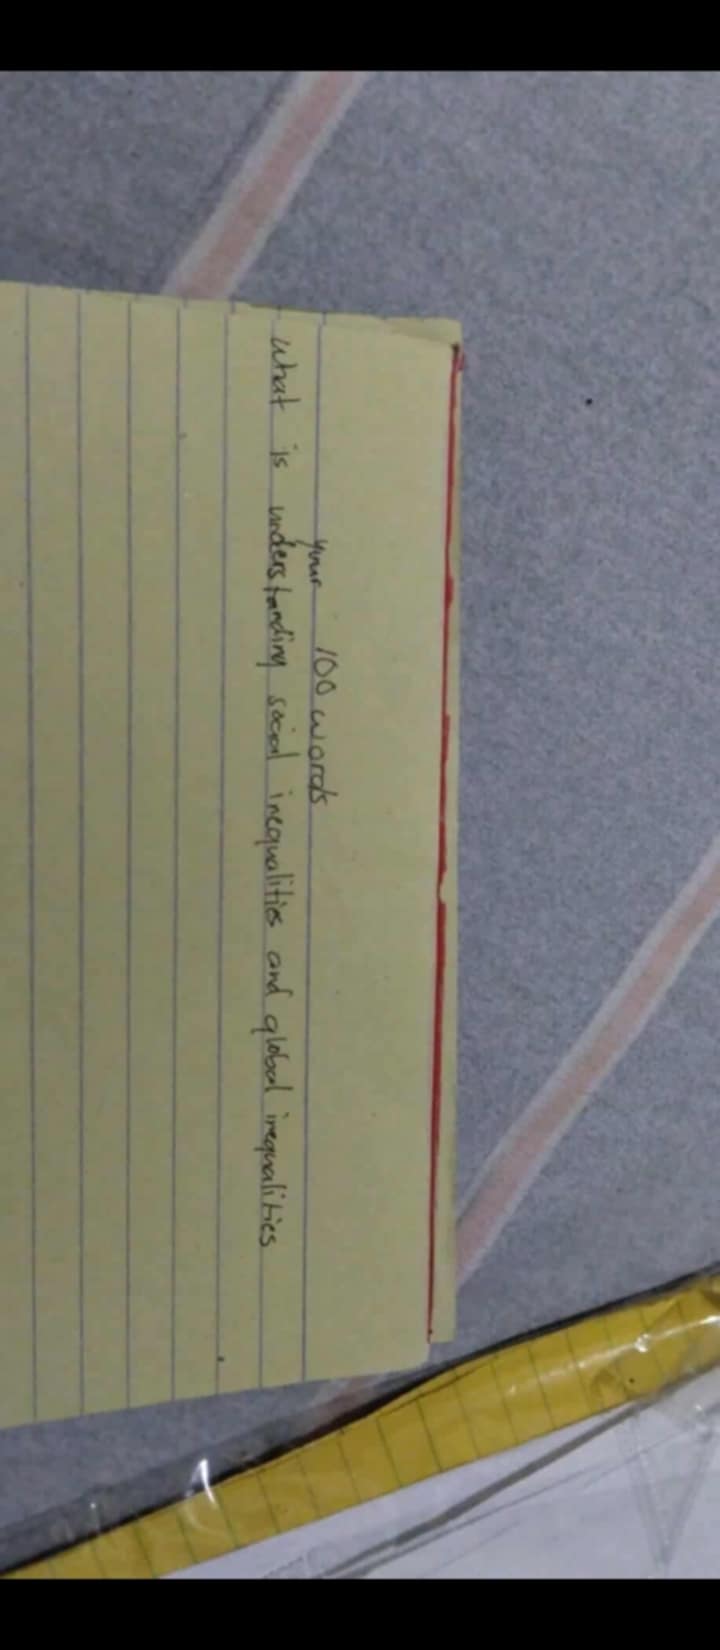 100 words
your
What is understanding social inequalities and global inequalities